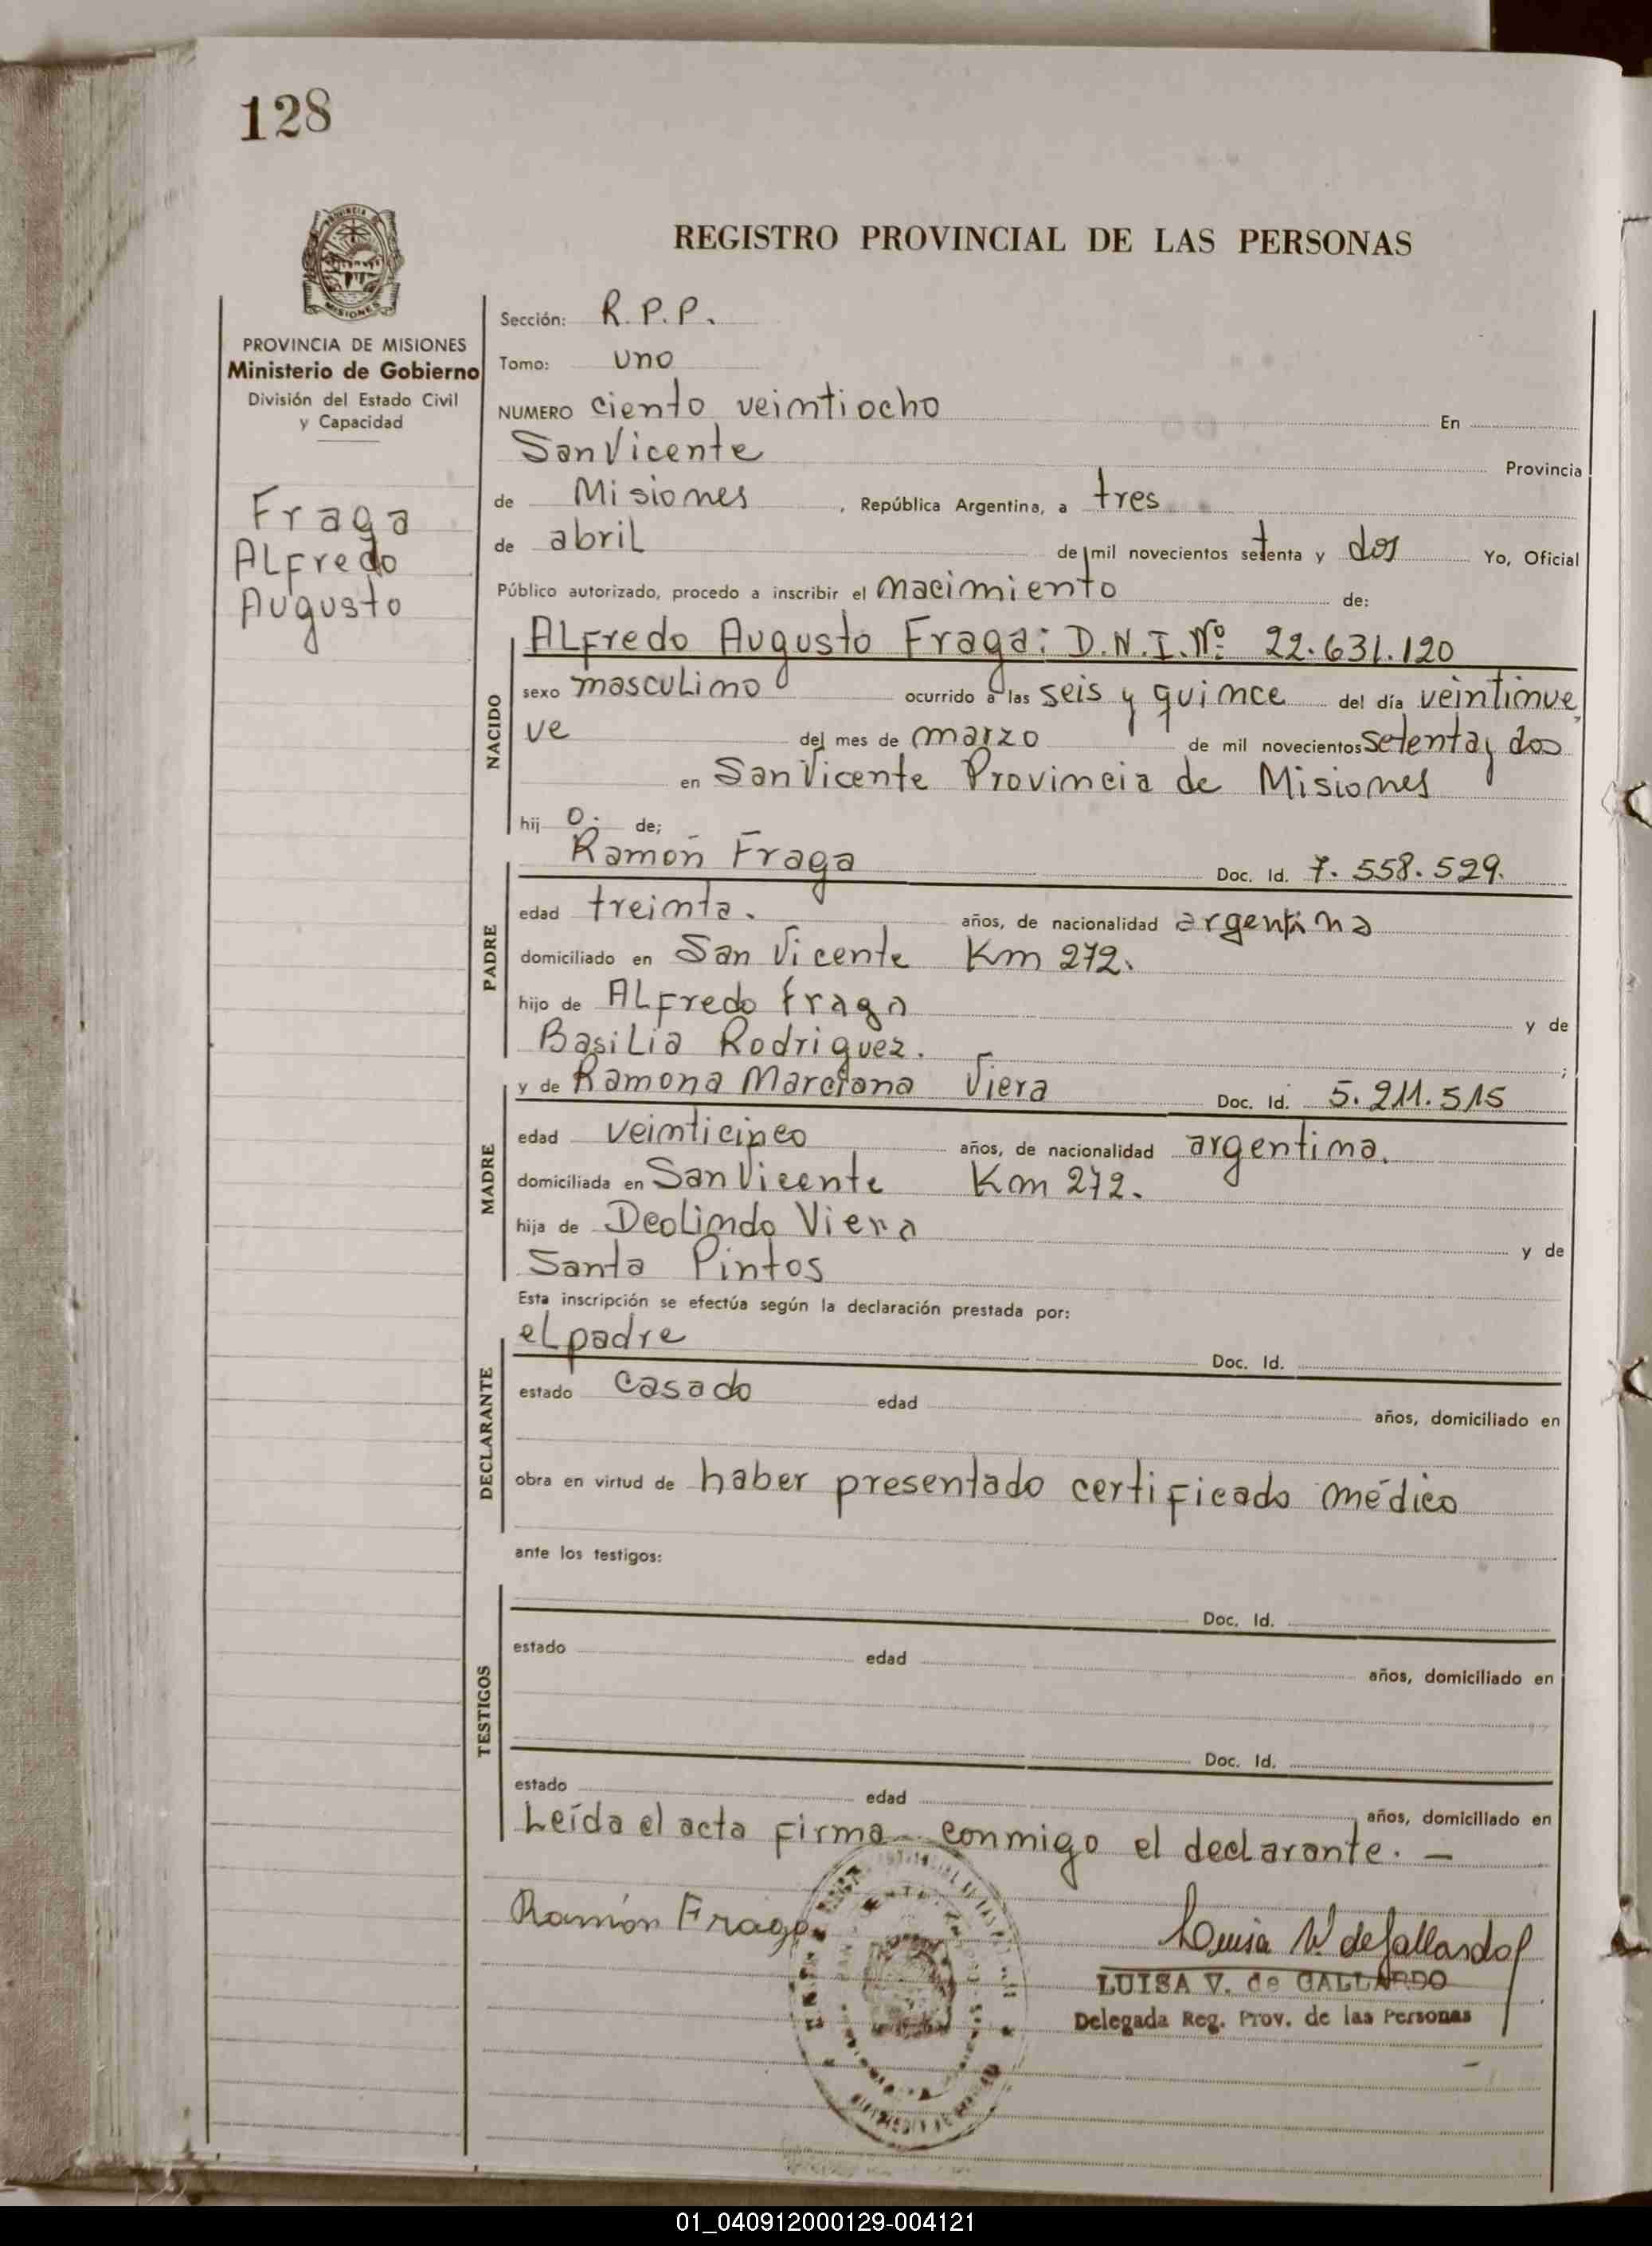 128
PROVINCIA DE
MISIONES
REGISTRO PROVINCIAL DE LAS PERSONAS
PROVINCIA DE MISIONES
Ministerio de Gobierno
División del Estado Civil
y Capacidad
Fraga
Alfredo
Augusto
Sección: R.P.P.
Tomo: uno
NUMERO ciento veintiocho En
San Vicente Provincia
de Misiones, República Argentina, a tres
de abril de mil novecientos setenta y dos Yo, Oficial
Público autorizado, procedo a inscribir el nacimiento de:
NACIDO
Alfredo Augusto Fraga: D.N.I.Nº 22.631.120
sexo masculino ocurrido a las seis y quince del día veintinue
ve del mes de marzo de mil novecientos setenta y dos
en San Vicente Provincia de Misiones
hij o. de;
PADRE
Ramón Fraga Doc. Id. 7.558.529.
edad treinta. años, de nacionalidad argentina
domiciliado en San Vicente Km 272.
hijo de Alfredo Fraga y de
Basilia Rodriguez. ;
MADRE
y de Ramona Marciana Viera Doc. Id. 5.211.515
edad veinticinco años, de nacionalidad argentina.
domiciliada en San Vicente Km 272.
hija de Deolindo Viera y de
Santa Pintos
Esta inscripción se efectúa según la declaración prestada por:
DECLARANTE
el padre Doc. Id.
estado casado edad años, domiciliado en
obra en virtud de haber presentado certificado médico
ante los testigos:
TESTIGOS
Doc. Id.
estado edad años, domiciliado en
Doc. Id.
estado edad años, domiciliado en
Leída el acta firma conmigo el declarante. —
Ramón Fraga
Luisa V. de Gallardo
LUISA V. de GALLARDO
Delegada Reg. Prov. de las Personas
01_040912000129-004121